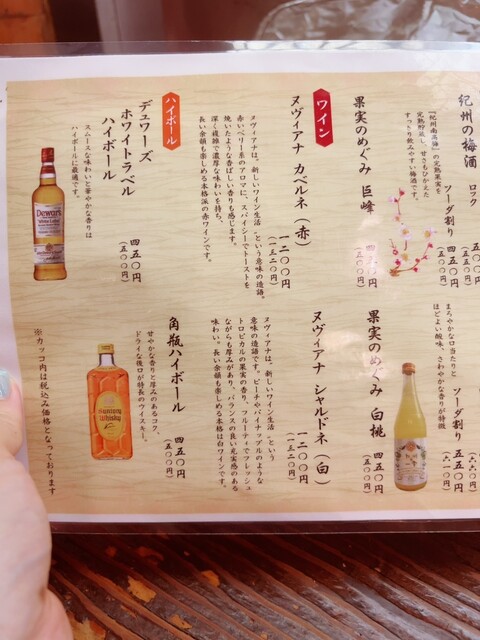 紀州の梅酒
ロック
五〇
ソーダ割り
四五〇円
(五〇〇円)
「紀州南高梅」の完熟果実を
完熟貯蔵し、甘さもひかえた
すっきり飲みやすい梅酒です。
まろやかな口当たりと
ほどよい酸味、さわやかな香りが特徴
ソーダ割り
五五〇円
(六一〇円)
果実のめぐみ 巨峰
四五〇円
(五〇〇円)
果実のめぐみ 白桃
四五〇円
(五〇〇円)
ワイン
ヌヴィアナ カベルネ(赤)
一二〇〇円
(一三二〇円)
ヌヴィアナは、新しいワイン生活〟という意味の造語。
赤いベリー系のアロマに、スパイシーでトーストを
焼いたような香ばしい香りも感じます。
深く複雑で濃厚な味わいを持ち、
長い余韻も楽しめる本格派の赤ワインです。
ヌヴィアナ シャルドネ(白)
一二〇〇円
(一三二〇円)
ヌヴィアナは、新しいワイン生活〟という
意味の造語です。ピーチやパイナップルのような
トロピカルの果実の香り、フルーティでフレッシュ
ながらも厚みがあり、バランスの良い充実感のある
味わい。長い余韻も楽しめる本格は白ワインです。
ハイボール
デュワーズ
ホワイトラベル
ハイボール
四五〇円
(五〇〇円)
スムースな味わいと華やかな香りは
ハイボールに最適です。
Dewar's
White Label
角瓶ハイボール
四五〇円
(五〇〇円)
甘やかな香りと厚みのあるコク、
ドライな後口が特長のウイスキー。
Suntory
Whisky
※カッコ内は税込み価格となっております